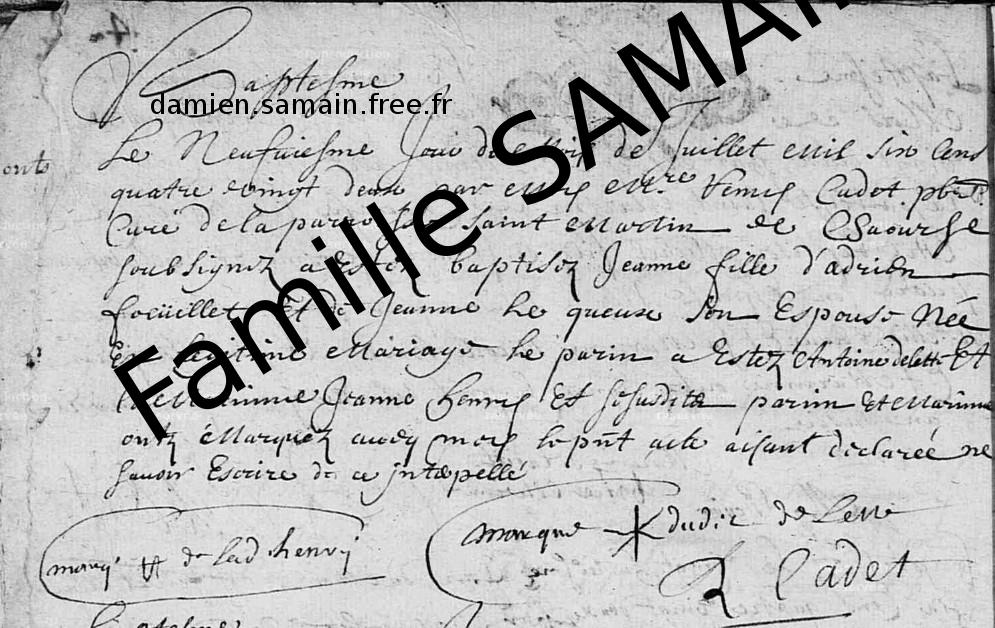 Baptesme
damien.samain.free.fr
Famille SAMAIN
Le Neufviesme Jour du Mois de Juillet Mil Six Cens
quatre Vingt deux par Moy Mre Remy Cadet pbre
Curé de la paroisse saint Martin de Chaourse
soubsignez a Estez baptisez Jeanne fille d'adrien
foëüillet Et de Jeanne Le queux son Espouse Née
En Legitime Mariage Le parin a Estez Antoine delette Et
La Marinne Jeanne Henry Et sesusdits parin Et Marinne
ontz Marquez avecq moy le pnt acte aisant declareé ne
savoir Escrire de ce jnterpellé
marq de lad henry
marque dudit de Lette
R Cadet